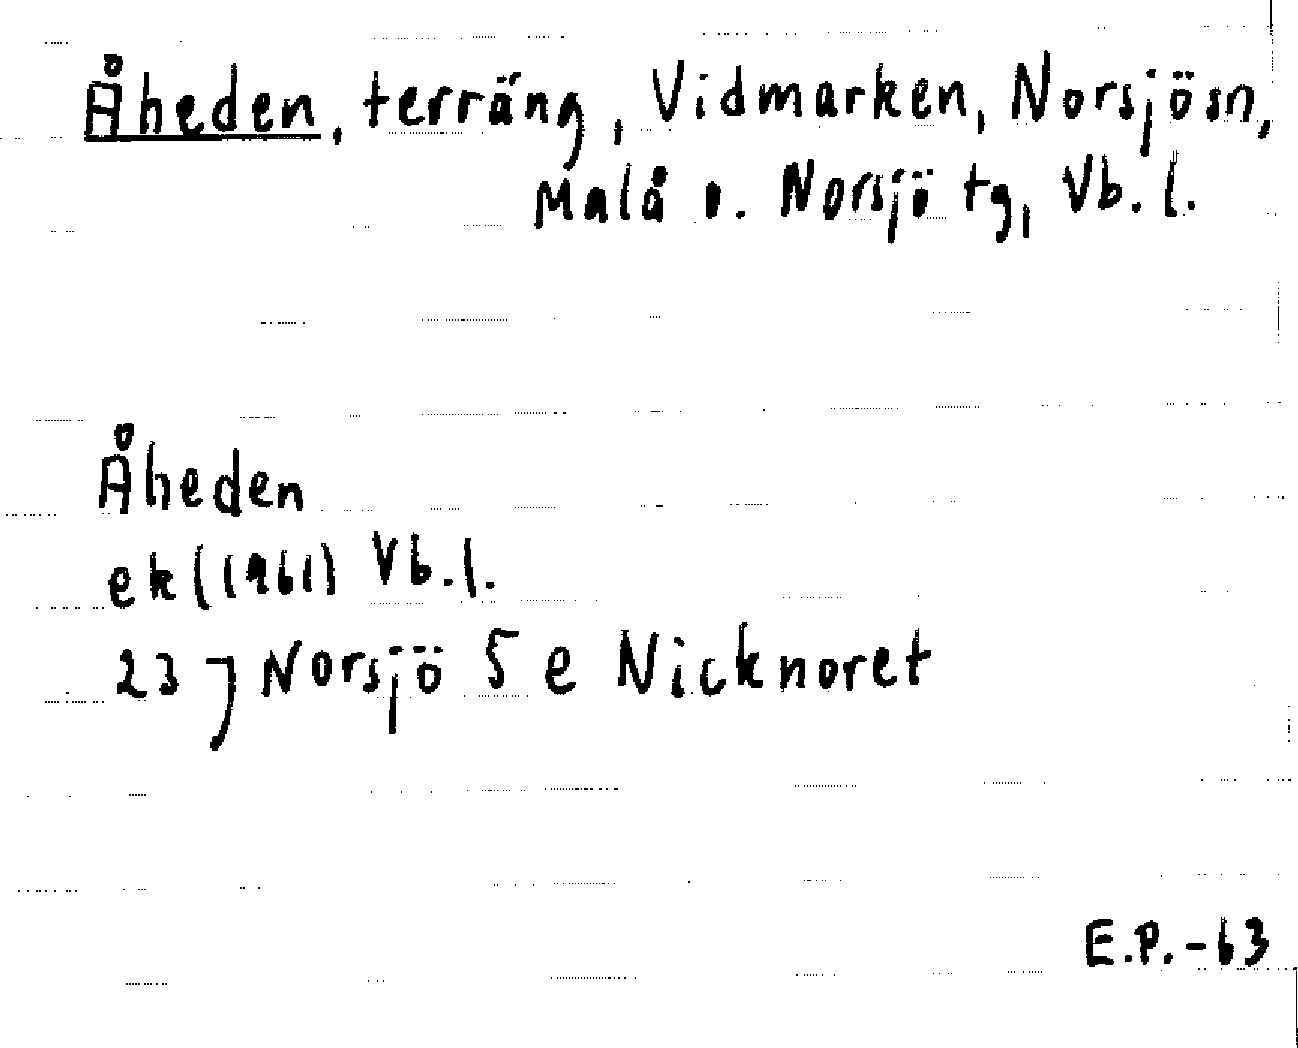 Åheden, terräng, Vidmarken, Norsjösn,
Malå o. Norsjö tg, Vb. l.
Åheden
ek (1961) Vb. l.
23 J Norsjö 5 e Nicknoret
E.P.-63